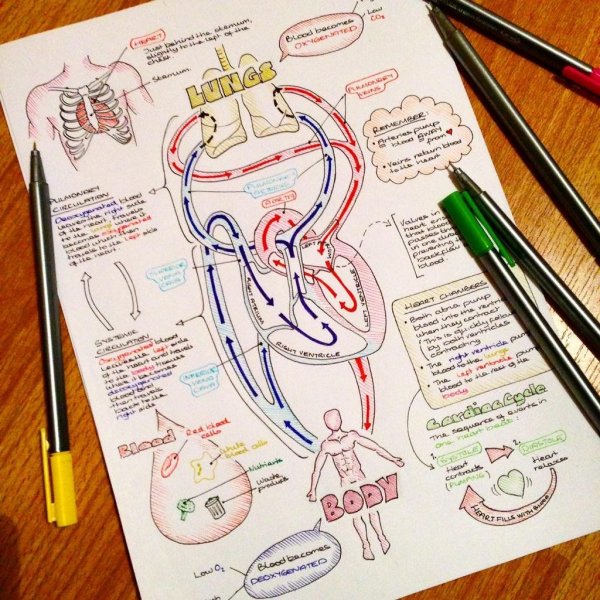 HEART
Just behind the sternum,
slightly to the left of the
chest
Sternum
LUNGS
Blood becomes
OXYGENATED
Low
CO₂
PULMONARY
VEINS
REMEMBER:
• Arteries pump
blood AWAY
from
• Veins return blood
to the heart
PULMONARY
CIRCULATION
Deoxygenated blood
leaves the right side
of the heart, travels
to the lungs where it
becomes oxygenated
blood which then
travels to the left side
of the heart.
PULMONARY
ARTERIES
AORTA
SUPERIOR
VENA
CAVA
Valves in
heart
that blood
passes
in one
preventing
backflow
blood
RIGHT ATRIUM
LEFT
LEFT VENTRICLE
RIGHT VENTRICLE
SYSTEMIC
CIRCULATION
Oxygenated blood
leaves the left side
of the heart and travels
to the body where it becomes
deoxygenated
blood and
then travels
back to the
right side
INFERIOR
VENA
CAVA
HEART CHAMBERS
• Both atria pump
blood into the
when they contract
• This is quickly
by both ventricles
contracting
• The right ventricle pump
blood to the lungs
• The left ventricle pump
blood to the rest of the
body
Blood
Red blood
cells
White
blood cells
Nutrients
Waste
products
BODY
Cardiac Cycle
The sequence of events in
one heart beat:
1.
SYSTOLE
Heart
contracts
(PUMPING)
2.
DIASTOLE
Heart
relaxes
HEART FILLS WITH BLOOD
Low O₂
Blood becomes
DEOXYGENATED